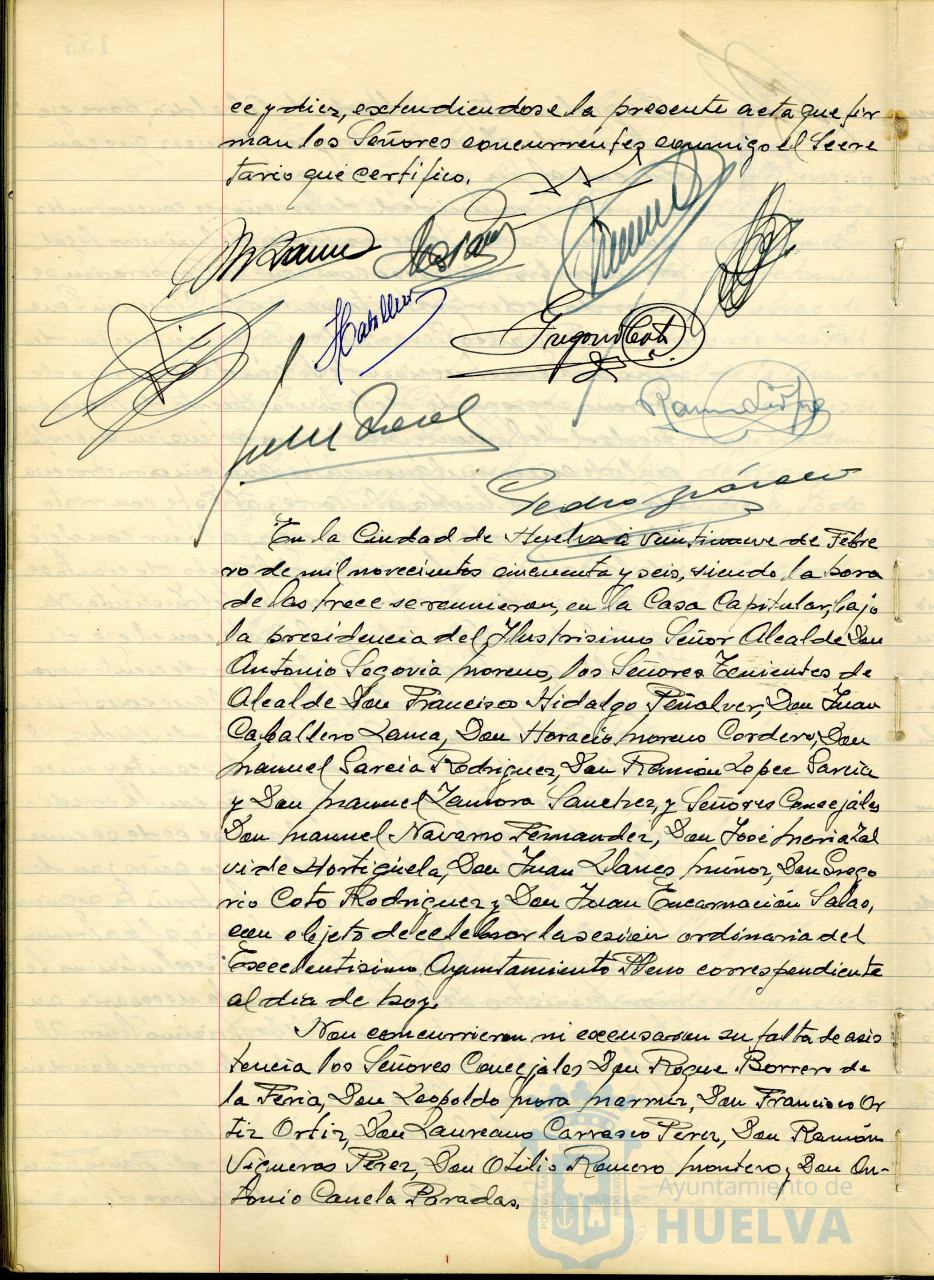 ce y diez, extendiendose la presente acta que fir
man los Señores concurrentes conmigo el Secre
tario que certifico.
HCaballero
Gregorio Coto
Pedro
En la Ciudad de Huelva a veintinueve de Febre
ro de mil novecientos cincuenta y seis, siendo la hora
de las trece se reunieron, en la Casa Capitular, bajo
la presidencia del Ilustrisimo Señor Alcalde Don
Antonio Segovia Moreno, los Señores Tenientes de
Alcalde Don Francisco Hidalgo Peñalver, Don Juan
Caballero Lama, Don Horacio Moreno Cordero, Don
Manuel Garcia Rodriguez, Don Ramón Lopez Garcia
y Don Manuel Zamora Sanchez, y Señores Concejales
Don Manuel Navarro Fernandez, Don José Maria Zal
vide Hortigüela, Don Juan Llanes Muñoz, Don Grego
rio Coto Rodriguez y Don Juan Encarnación Salas,
con objeto de celebrar la sesión ordinaria del
Excelentisimo Ayuntamiento Pleno correspondiente
al dia de hoy.
Non concurrieron ni excusaron su falta de asis
tencia los Señores Concejales Don Roque Borrero de
la Feria, Don Leopoldo Mora Don Francisco Or
tiz Ortiz, Don Laureano Carrasco Perez, Don Ramón
Vigueras Pérez, Don Otilio Romero Montero y Don An-
tonio Canela Paradas.
Ayuntamiento de
HUELVA